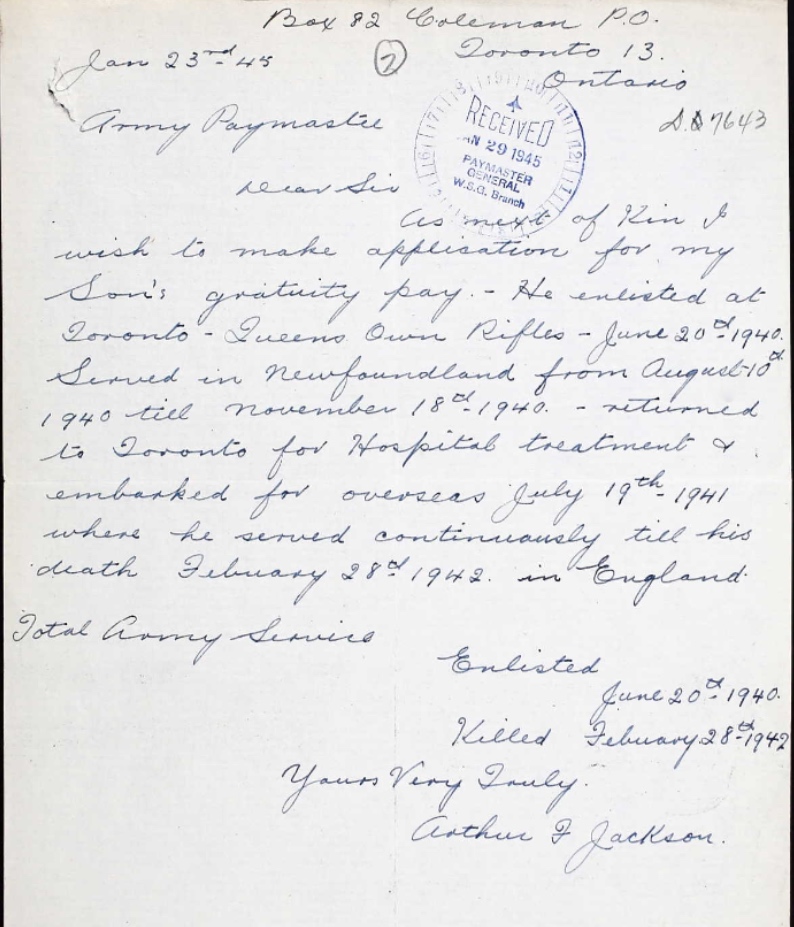 Box 82 Coleman P.O.
Jan 23rd-45
2
Toronto 13.
Ontario
Army Paymaster
D.D 7643
RECEIVED
AN 29 1945
PAYMASTER
GENERAL
W.S.G. Branch
Dear Sir
As next of Kin I
wish to make application for my
Son's gratuity pay. - He enlisted at
Toronto - Queens Own Rifles - June 20th-1940.
Served in Newfoundland from August 10th
1940 till November 18th-1940. - returned
to Toronto for Hospital treatment &
embarked for overseas July 19th-1941
where he served continuously till his
death Febuary 28th 1942. in England.
Total Army Service
Enlisted
June 20th-1940.
Killed Febuary 28th-1942
Yours Very Truly.
Arthur F Jackson.